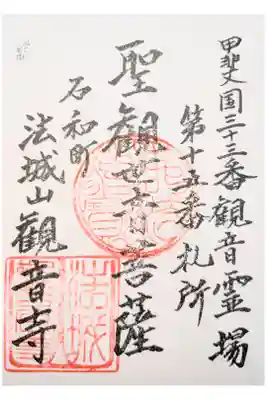 甲斐国三十三番観音霊場
第十五番札所
聖観世音菩薩
石和町
法城山觀音寺